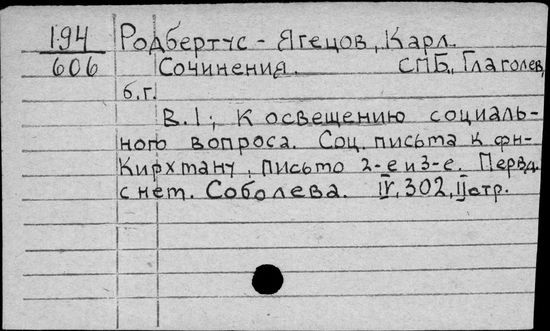 194 Родбертус - Ягецов, Карл.
606 Сочинения. СПБ., Глаголев,
б.г.
В.1; К освещению социаль-
ного вопроса. Соц. письма к фн-
Кирхману, письмо 2-е и 3-е. Перевд.
с нем. Соболева. IV, 302, II стр.